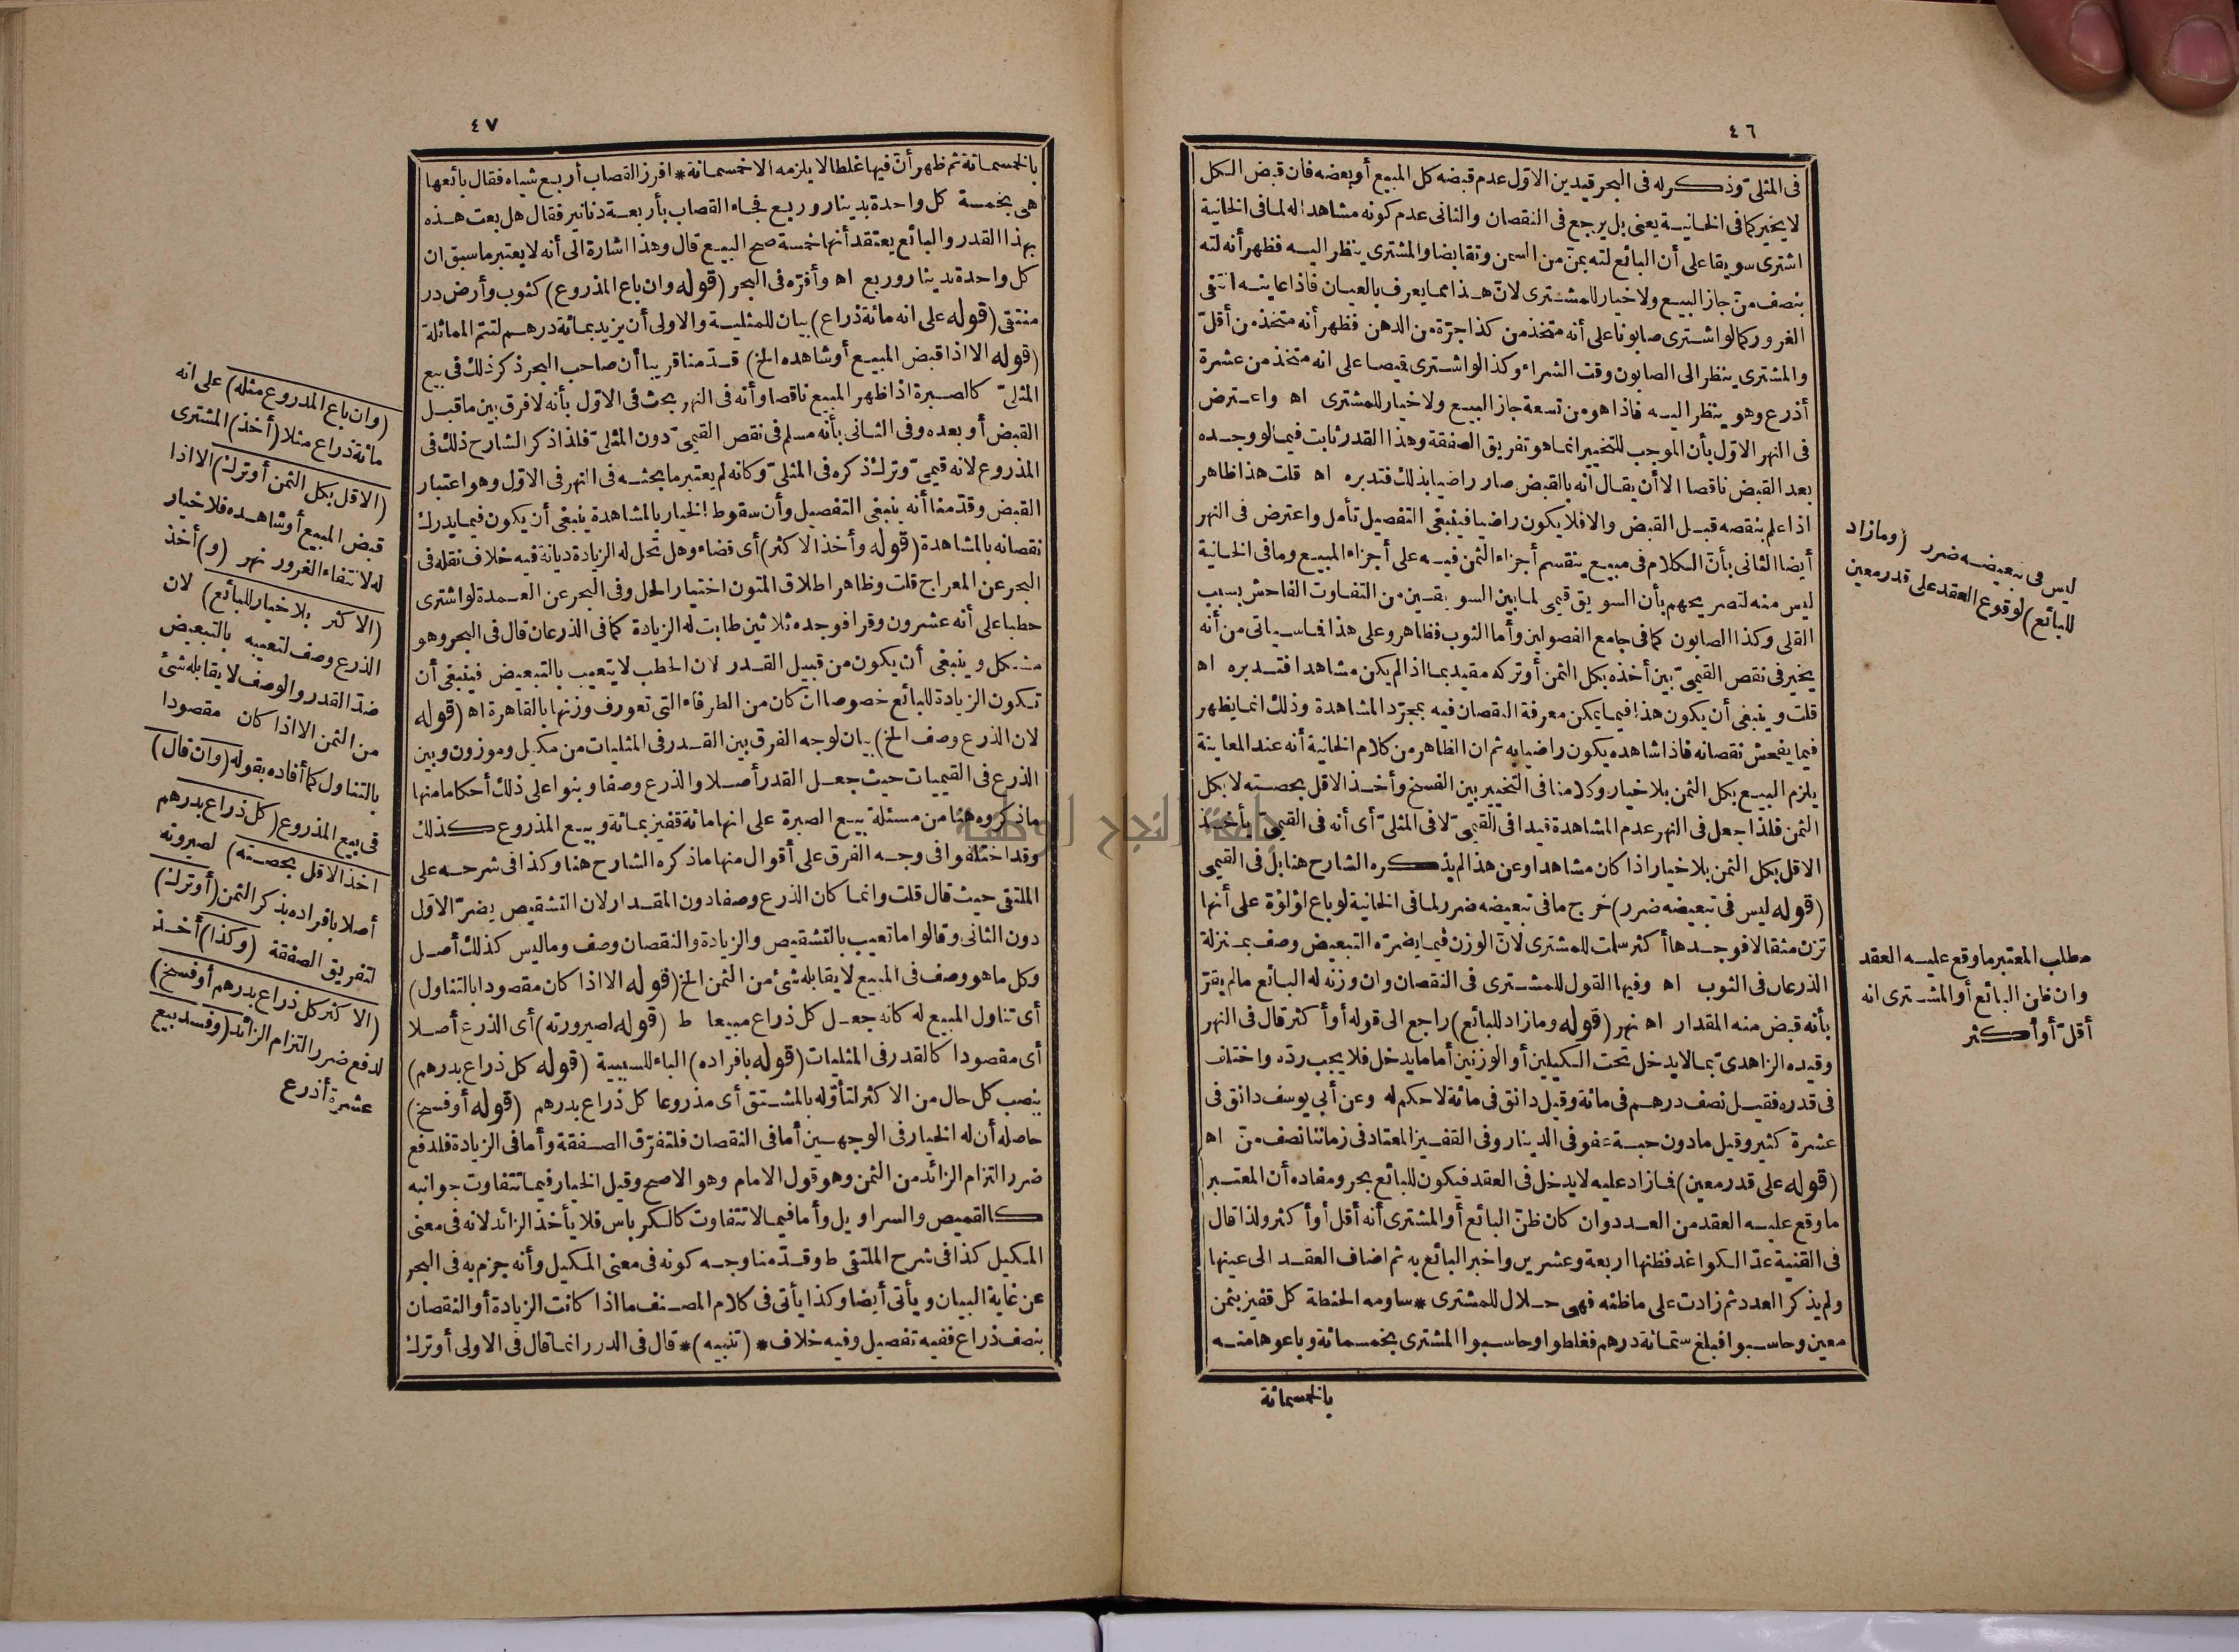 ٤٦
فى المثلىّ وذكر له فى البحر قيدين الاوّل عدم قبضه كل المبيع أو بعضه فان قبض الكل
لا يخير كما فى الخانية يعنى بل يرجع فى النقصان والثانى عدم كونه مشاهدا له لما فى الخانية
اشترى سويقا على أن البائع لته بمنّ من السمن وتقابضا والمشترى ينظر اليه فظهر أنه لته
بنصف منّ جاز البيع ولا خيار للمشترى لانّ هذا مما يعرف بالعيان فاذا عاينه انتفى
الغرور كما لو اشترى صابونا على أنه متخذ من كذا جرّة من الدهن فظهر أنه متخذ من أقلّ
والمشترى ينظر الى الصابون وقت الشراء وكذا لو اشترى قيصا على انه متخذ من عشرة
أذرع وهو ينظر اليه فاذا هو من تسعة جاز البيع ولا خيار للمشترى اه واعترض
فى النهر الاوّل بأن الموجب للتخيير انما هو تفريق الصفقة وهذا القدر ثابت فيما لو وجده
بعد القبض ناقصا الا أن يقال انه بالقبض صار راضيا بذلك فتدبره اه قلت هذا ظاهر
اذا علم بنقصه قبل القبض والا فلا يكون راضيا فينبغى التفصيل تأمل واعترض فى النهر
أيضا الثانى بأنّ الكلام فى مبيع ينقسم أجزاء الثمن فيه على أجزاء المبيع وما فى الخانية
ليس منه لتصريحهم بأن السويق قيمى لما بين السويقين من التفاوت الفاحش بسبب
القلى وكذا الصابون كما فى جامع الفصولين وأما الثوب فظاهر وعلى هذا فما سيأتى من أنه
يخير فى نقص القيمىّ بين أخذه بكل الثمن أو تركه مقيد بما اذا لم يكن مشاهدا فتدبره اه
قلت وينبغى أن يكون هذا فيما يمكن معرفة النقصان فيه بمجرّد المشاهدة وذلك انما يظهر
فيما يفحش نقصانه فاذا شاهده يكون راضيا به ثم ان الظاهر من كلام الخانية أنه عند المعاينة
يلزم البيع بكل الثمن بلا خيار وكلامنا فى التخيير بين الفسخ وأخذ الاقل بحصته لا بكل
الثمن فلذا جعل فى النهر عدم المشاهدة قيدا فى القيمىّ لا فى المثلىّ أى أنه فى القيمىّ يأخذ
الاقل بكل الثمن بلا خيار اذا كان مشاهدا وعن هذا لم يذكره الشارح هنا بل فى القيمى
(قوله ليس فى تبعيضه ضرر) خرج ما فى تبعيضه ضرر لما فى الخانية لو باع لؤلؤة على أنها
تزن مثقالا فوجدها أكثر سلمت للمشترى لانّ الوزن فيما يضرّه التبعيض وصف بمنزلة
الذرعان فى الثوب اه وفيها القول للمشترى فى النقصان وان وزنه له البائع ما لم يقرّ
بأنه قبض منه المقدار اه نهر (قوله وما زاد للبائع) راجع الى قوله أو أكثر قال فى النهر
وقيده الزاهدىّ بما لا يدخل تحت الكيلين أو الوزنين أما ما يدخل فلا يجب ردّه واختلف
فى قدره فقيل نصف درهم فى مائة وقيل دانق فى مائة لا حكم له وعن أبى يوسف دانق فى
عشرة كثير وقيل ما دون حبة عفو فى الدينار وفى القفيز المعتاد فى زماننا نصف منّ اه
(قوله على قدر معين) فما زاد عليه لا يدخل فى العقد فيكون للبائع بحر ومفاده أن المعتبر
ما وقع عليه العقد من العدد وان كان ظنّ البائع أو المشترى أنه أقل أو أكثر ولذا قال
فى القنية عدّ الكواغد فظنها اربعة وعشرين واخبر البائع به ثم اضاف العقد الى عينها
ولم يذكر العدد ثم زادت على ما ظنه فهى حلال للمشترى * ساومه الحنطة كل قفيز بثمن
معين وحاسبوا فبلغ ستمائة درهم فغلطوا وحاسبوا المشترى بخمسمائة وباعوها منه
بالخمسمائة
ليس فى تبعيضه ضرر (وما زاد
للبائع) لوقوع العقد على قدر معين
مطلب المعتبر ما وقع عليه العقد
وان ظن البائع أو المشترى انه
أقلّ أو أكثر
٤٧
بالخمسمائة ثم ظهر أنّ فيها غلطا لا يلزمه الا خمسمائة * افرز القصاب أربع شياه فقال بائعها
هى بخمسة كل واحدة بدينار وربع فجاء القصاب بأربعة دنانير فقال هل بعت هذه
بهذا القدر والبائع يعتقد أنها خمسة صح البيع قال وهذا اشارة الى أنه لا يعتبر ما سبق ان
كل واحدة بدينار وربع اه وأقرّه فى البحر (قوله وان باع المذروع) كثوب وأرض در
منتقى (قوله على انه مائة ذراع) بيان للمثلية والاولى أن يزيد بمائة درهم لتتم المماثلة
(قوله الا اذا قبض المبيع أو شاهده الخ) قدّمنا قريبا أن صاحب البحر ذكر ذلك فى بيع
المثلىّ كالصبرة اذا ظهر المبيع ناقصا وأنه فى النهر بحث فى الاوّل بأنه لا فرق بين ما قبل
القبض أو بعده وفى الثانى بأنه مسلم فى نقص القيمىّ دون المثلىّ فلذا ذكر الشارح ذلك فى
المذروع لانه قيمىّ وترك ذكره فى المثلىّ وكانه لم يعتبر ما بحثه فى النهر فى الاوّل وهو اعتبار
القبض وقدّمنا أنه ينبغى التفصيل وأن سقوط الخيار بالمشاهدة ينبغى أن يكون فيما يدرك
نقصانه بالمشاهدة (قوله وأخذ الاكثر) أى قضاء وهل تحل له الزيادة ديانة فيه خلاف نقله فى
البحر عن المعراج قلت وظاهر اطلاق المتون اختيار الحل وفى البحر عن العمدة لو اشترى
حطبا على أنه عشرون وقرا فوجده ثلاثين طابت له الزيادة كما فى الذرعان قال فى البحر وهو
مشكل وينبغى أن يكون من قبيل القدر لان الحطب لا يتعيب بالتبعيض فينبغى أن
تكون الزيادة للبائع خصوصا ان كان من الطرفاء التى تعورف وزنها بالقاهرة اه (قوله
لان الذرع وصف الخ) بيان لوجه الفرق بين القدر فى المثليات من مكيل وموزون وبين
الذرع فى القيميات حيث جعل القدر أصلا والذرع وصفا وبنوا على ذلك أحكاما منها
ما ذكروه هنا من مسئلة بيع الصبرة على انها مائة قفيز بمائة وبيع المذروع كذلك
وقد اختلفوا فى وجه الفرق على أقوال منها ما ذكره الشارح هنا وكذا فى شرحه على
الملتقى حيث قال قلت وانما كان الذرع وصفا دون المقدار لان التشقيص يضرّ الاوّل
دون الثانى وقالوا ما تعيب بالتشقيص والزيادة والنقصان وصف وما ليس كذلك أصل
وكل ما هو وصف فى المبيع لا يقابله شئ من الثمن الخ (قوله الا اذا كان مقصودا بالتناول)
أى تناول المبيع له كانه جعل كل ذراع مبيعا ط (قوله لصيرورته) أى الذرع أصلا
أى مقصودا كالقدر فى المثليات (قوله بافراده) الباء للسببية (قوله كل ذراع بدرهم)
بنصب كل حال من الاكثر لتأوّله بالمشتق أى مذروعا كل ذراع بدرهم (قوله أو فسخ)
حاصله أن له الخيار فى الوجهين أما فى النقصان فلتفرّق الصفقة وأما فى الزيادة فلدفع
ضرر التزام الزائد من الثمن وهو قول الامام وهو الاصح وقيل الخيار فيما تتفاوت جوانبه
كالقميص والسراويل وأما فيما لا تتفاوت كالكرباس فلا يأخذ الزائد لانه فى معنى
المكيل كذا فى شرح الملتقى ط وقدّمنا وجه كونه فى معنى المكيل وأنه جزم به فى البحر
عن غاية البيان ويأتى أيضا وكذا يأتى فى كلام المصنف ما اذا كانت الزيادة أو النقصان
بنصف ذراع ففيه تفصيل وفيه خلاف * (تنبيه) * قال فى الدرر انما قال فى الاولى أو ترك
(وان باع المذروع مثله) على انه
مائة ذراع مثلا (أخذ) المشترى
(الاقل بكل الثمن أو ترك) الا اذا
قبض المبيع أو شاهده فلا خيار
له لانتفاء الغرور نهر (و) أخذ
(الاكثر بلا خيار للبائع) لان
الذرع وصف لتعيبه بالتبعيض
ضدّ القدر والوصف لا يقابله شئ
من الثمن الا اذا كان مقصودا
بالتناول كما أفاده بقوله (وان قال)
فى بيع المذروع (كل ذراع بدرهم
اخذ الاقل بحصته) لصيرورته
أصلا بافراده بذكر الثمن (أو ترك)
لتفريق الصفقة (وكذا) أخذ
(الاكثر كل ذراع بدرهم أو فسخ)
لدفع ضرر التزام الزائد (وفسد بيع
عشرة أذرع
جامعة النجاح الوطنية